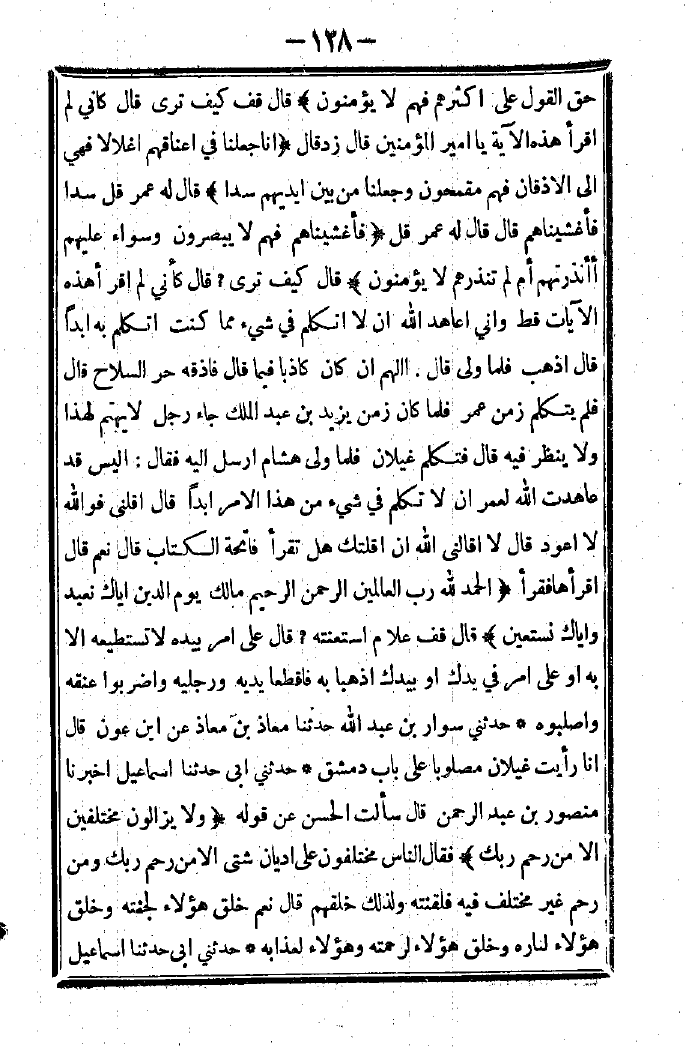 — ١٣٨ —
حق القول على اكثرهم فهم لا يؤمنون ﴾ قال قف كيف ترى قال كاني لم
اقرأ هذه الآية يا امير المؤمنين قال زد قال ﴿ انا جعلنا في اعناقهم اغلالا فهي
الى الاذقان فهم مقمحون وجعلنا من بين ايديهم سدا ﴾ قال له عمر قل سدا
فأغشيناهم قال قال له عمر قل ﴿ فأغشيناهم فهم لا يبصرون وسواء عليهم
أأنذرتهم أم لم تنذرهم لا يؤمنون ﴾ قال كيف ترى ? قال كأني لم اقر أهذه
الآيات قط واني اعاهد الله ان لا اتكلم في شيء مما كنت اتكلم به ابداً
قال اذهب فلما ولى قال . اللهم ان كان كاذبا فيما قال فاذقه حر السلاح قال
فلم يتكلم زمن عمر فلما كان زمن يزيد بن عبد الملك جاء رجل لا يهتم لهذا
ولا ينظر فيه قال فتكلم غيلان فلما ولى هشام ارسل اليه فقال : اليس قد
عاهدت الله لعمر ان لا تكلم في شيء من هذا الامر ابداً قال اقلني فوالله
لا اعود قال لا اقالني الله ان اقلتك هل تقرأ فاتحة الكتاب قال نعم قال
اقرأها فقرأ ﴿ الحمد لله رب العالمين الرحمن الرحيم مالك يوم الدين اياك نعبد
واياك نستعين ﴾ قال قف علام استعنته ? قال على امر بيده لا تستطيعه الا
به او على امر في يدك او بيدك اذهبا به فاقطعا يديه ورجليه واضربوا عنقه
واصلبوه * حدثني سوار بن عبد الله حدثنا معاذ بن معاذ عن ابن عون قال
انا رأيت غيلان مصلوبا على باب دمشق * حدثني ابى حدثنا اسماعيل اخبرنا
منصور بن عبد الرحمن قال سألت الحسن عن قوله ﴿ ولا يزالون مختلفين
الا من رحم ربك ﴾ فقال الناس مختلفون على اديان شتى الا من رحم ربك ومن
رحم غير مختلف فيه فلقنته ولذلك خلقهم قال نعم خلق هؤلاء لجنته وخلق
هؤلاء لناره وخلق هؤلاء لرحمته وهؤلاء لعذابه * حدثني ابى حدثنا اسماعيل